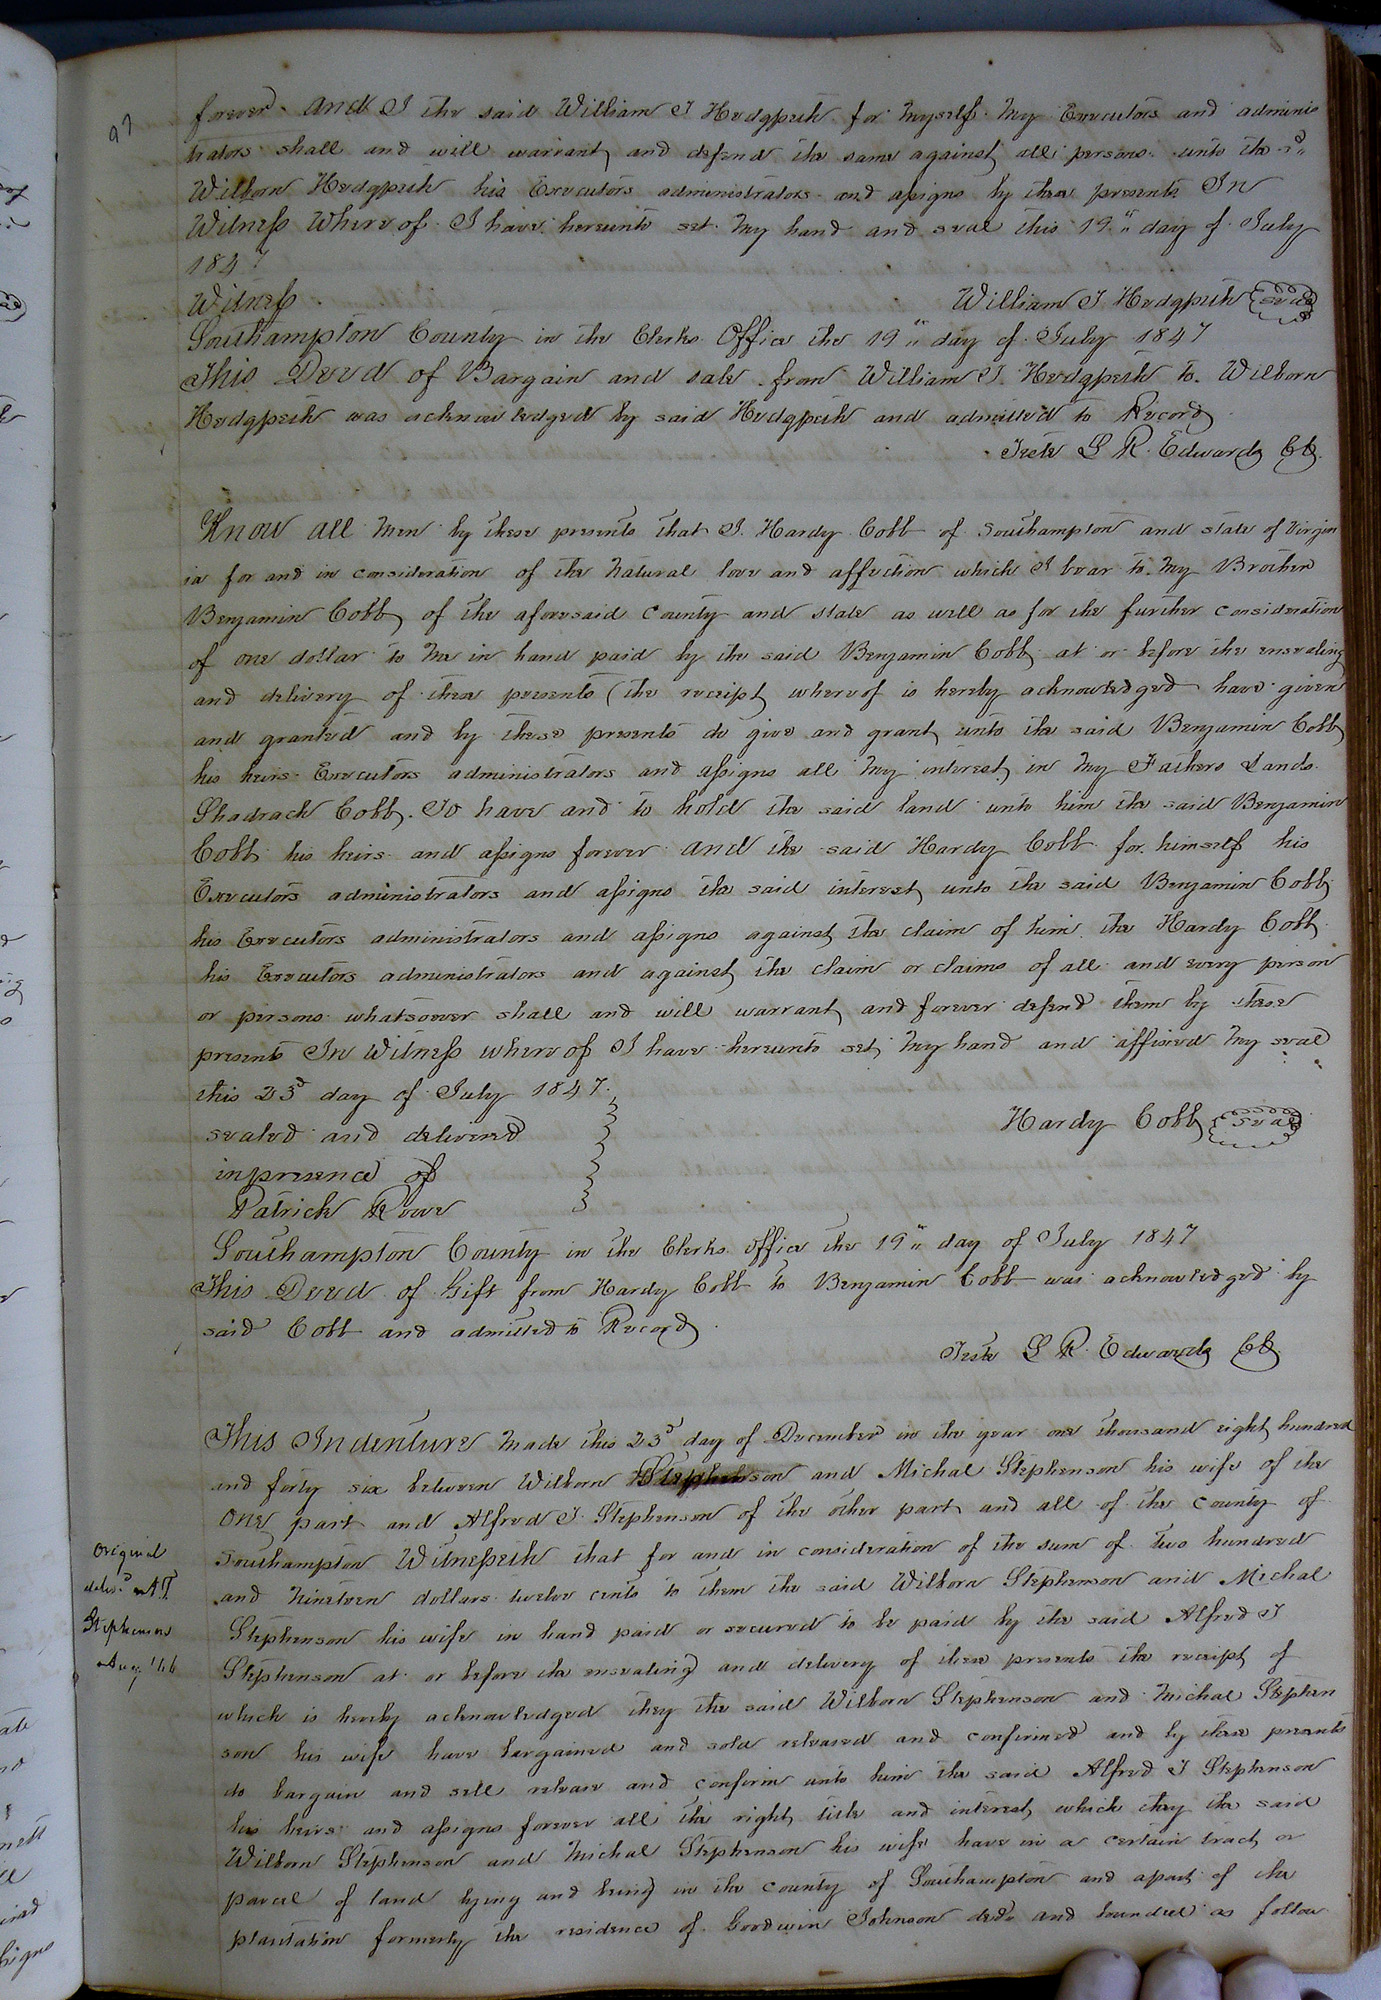 97
forever. And I the said William J Hedgpeth for myself my Executors and adminis
trators shall and will warrant and defend the same against all persons unto the sd
Wilborn Hedgpeth his Executors administrators and assigns by these presents In
Witness Where of I have hereunto set my hand and seal this 19" day of July
1847
Witness
William J Hedgpeth seal
Southampton County in the Clerks Office the 19" day of July 1847
This Deed of Bargain and sale from William J. Hedgpeth to Wilborn
Hedgpeth was acknowledged by said Hedgpeth and admitted to Record
Teste L R. Edwards Clk.
Know all men by these presents that I. Hardy Cobb of Southampton and state of Virgin
ia for and in consideration of the natural love and affection which I bear to my Brother
Benjamin Cobb of the aforesaid County and state as well as for the further consideration
of one dollar to me in hand paid by the said Benjamin Cobb at or before the ensealing
and delivery of these presents (the receipt whereof is hereby acknowledged have given
and granted and by these presents do give and grant unto the said Benjamin Cobb
his heirs Executors administrators and assigns all my interest in my Fathers Lands
Shadrack Cobb. To have and to hold the said land unto him the said Benjamin
Cobb his heirs and assigns forever and the said Hardy Cobb for himself his
Executors administrators and assigns the said interest unto the said Benjamin Cobb
his Executors administrators and assigns against the claim of him the Hardy Cobb
his Executors administrators and against the claim or claims of all and every person
or persons whatsoever shall and will warrant and forever defend them by these
presents In Witness where of I have hereunto set my hand and affixed my seal
this 23d day of July 1847.
Hardy Cobb seal
sealed and delivered
in presence of
Patrick Rowe
Southampton County in the Clerks office the 19" day of July 1847
This Deed of Gift from Hardy Cobb to Benjamin Cobb was acknowledged by
said Cobb and admitted to Record
Teste L R. Edwards Clk.
This Indenture made this 23d day of December in the year one thousand eight hundred
and forty six between Wilborn Stephenson and Michal Stephenson his wife of the
one part and Alfred J. Stephenson of the other part and all of the County of
Southampton Witnesseth that for and in consideration of the sum of two hundred
and nineteen dollars twelve cents to them the said Wilborn Stephenson and Michal
Stephenson his wife in hand paid or secured to be paid by the said Alfred J
Stephenson at or before the ensealing and delivery of these presents the receipt of
which is hereby acknowledged they the said Wilborn Stephenson and Michal Stephen
son his wife have bargained and sold released and confirmed and by these presents
do bargain and sell release and confirm unto him the said Alfred J Stephenson
his heirs and assigns forever all the right title and interest which they the said
Wilborn Stephenson and Michal Stephenson his wife have in a certain tract or
parcel of land lying and being in the county of Southampton and apart of the
plantation formerly the residence of Goodwin Johnson decd. and bounded as follow
Original
Stephenson